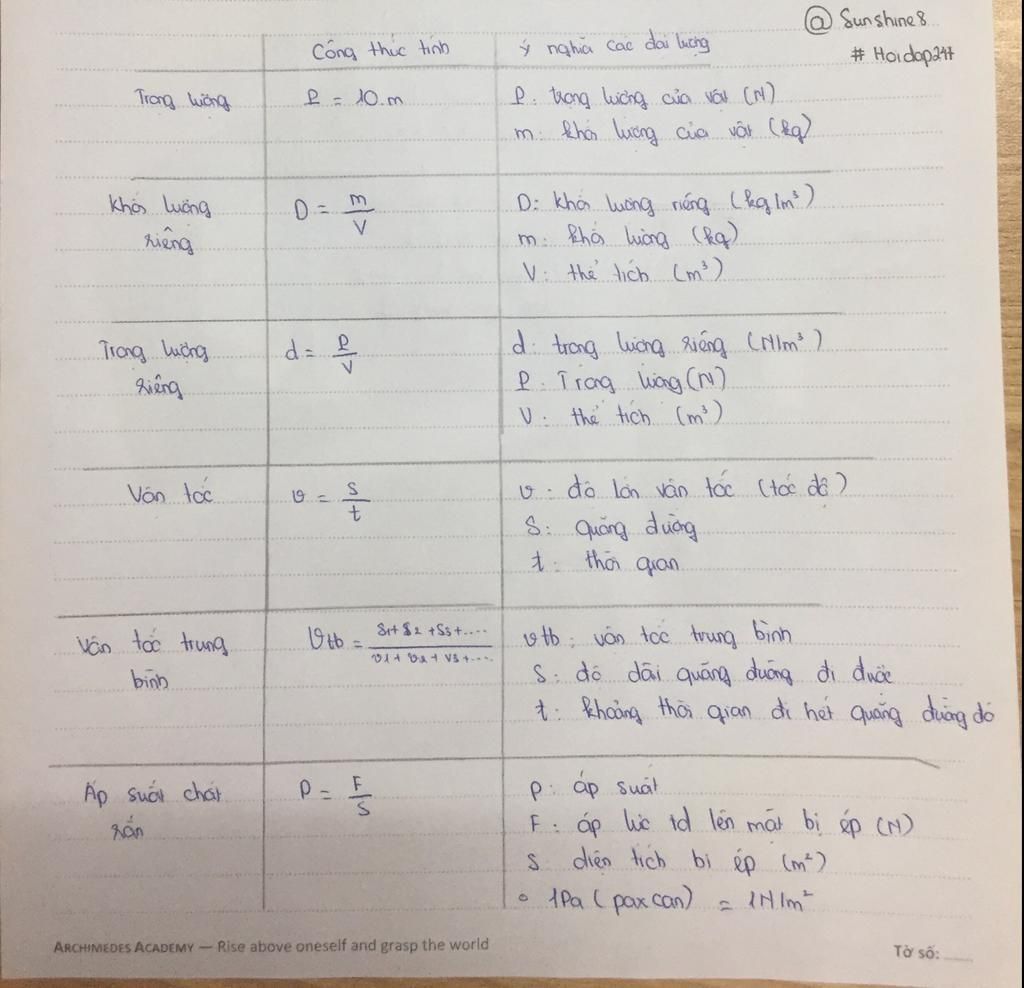 @ Sunshine8
# Hoidap247
Công thức tính ý nghĩa các đại lượng
Trọng lượng P = 10.m P: trọng lượng của vật (N)
m: khối lượng của vật (kg)
Khối lượng riêng D = m/V D: khối lượng riêng (kg/m³)
m: khối lượng (kg)
V: thể tích (m³)
Trọng lượng riêng d = P/V d: trọng lượng riêng (N/m³)
P: Trọng lượng (N)
V: thể tích (m³)
Vận tốc v = s/t v: độ lớn vận tốc (tốc độ)
S: quãng đường
t: thời gian
Vận tốc trung bình vtb = s1 + s2 + s3 + .... / v1 + v2 + v3 + .... vtb: vận tốc trung bình
S: độ dài quãng đường đi được
t: khoảng thời gian đi hết quãng đường đó
Áp suất chất rắn P = F/S p: áp suất
F: áp lực td lên mặt bị ép (N)
S diện tích bị ép (m²)
° 1Pa (paxcan) = 1N/m²
ARCHIMEDES ACADEMY — Rise above oneself and grasp the world
Tờ số: ____